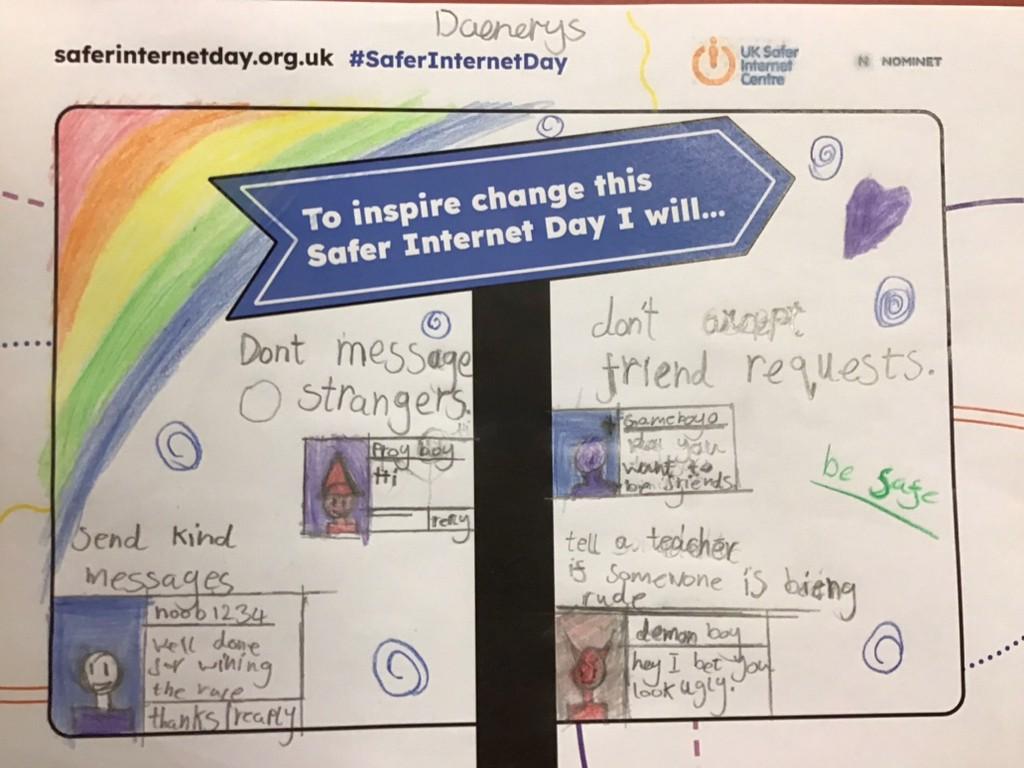 Daenerys
saferinternetday.org.uk #SaferInternetDay
UK Safer
Internet
Centre
N NOMINET
To inspire change this
Safer Internet Day I will...
Dont message
strangers.
Frog boy
Hi
reply
don't accept
friend requests.
Gameboyo
you
want to
be friends
be safe
Send kind
messages
noob1234
well done
for wining
the race
thanks reaply
tell a teacher
if somewone is bieng
rude
demon boy
hey I bet you
look ugly.